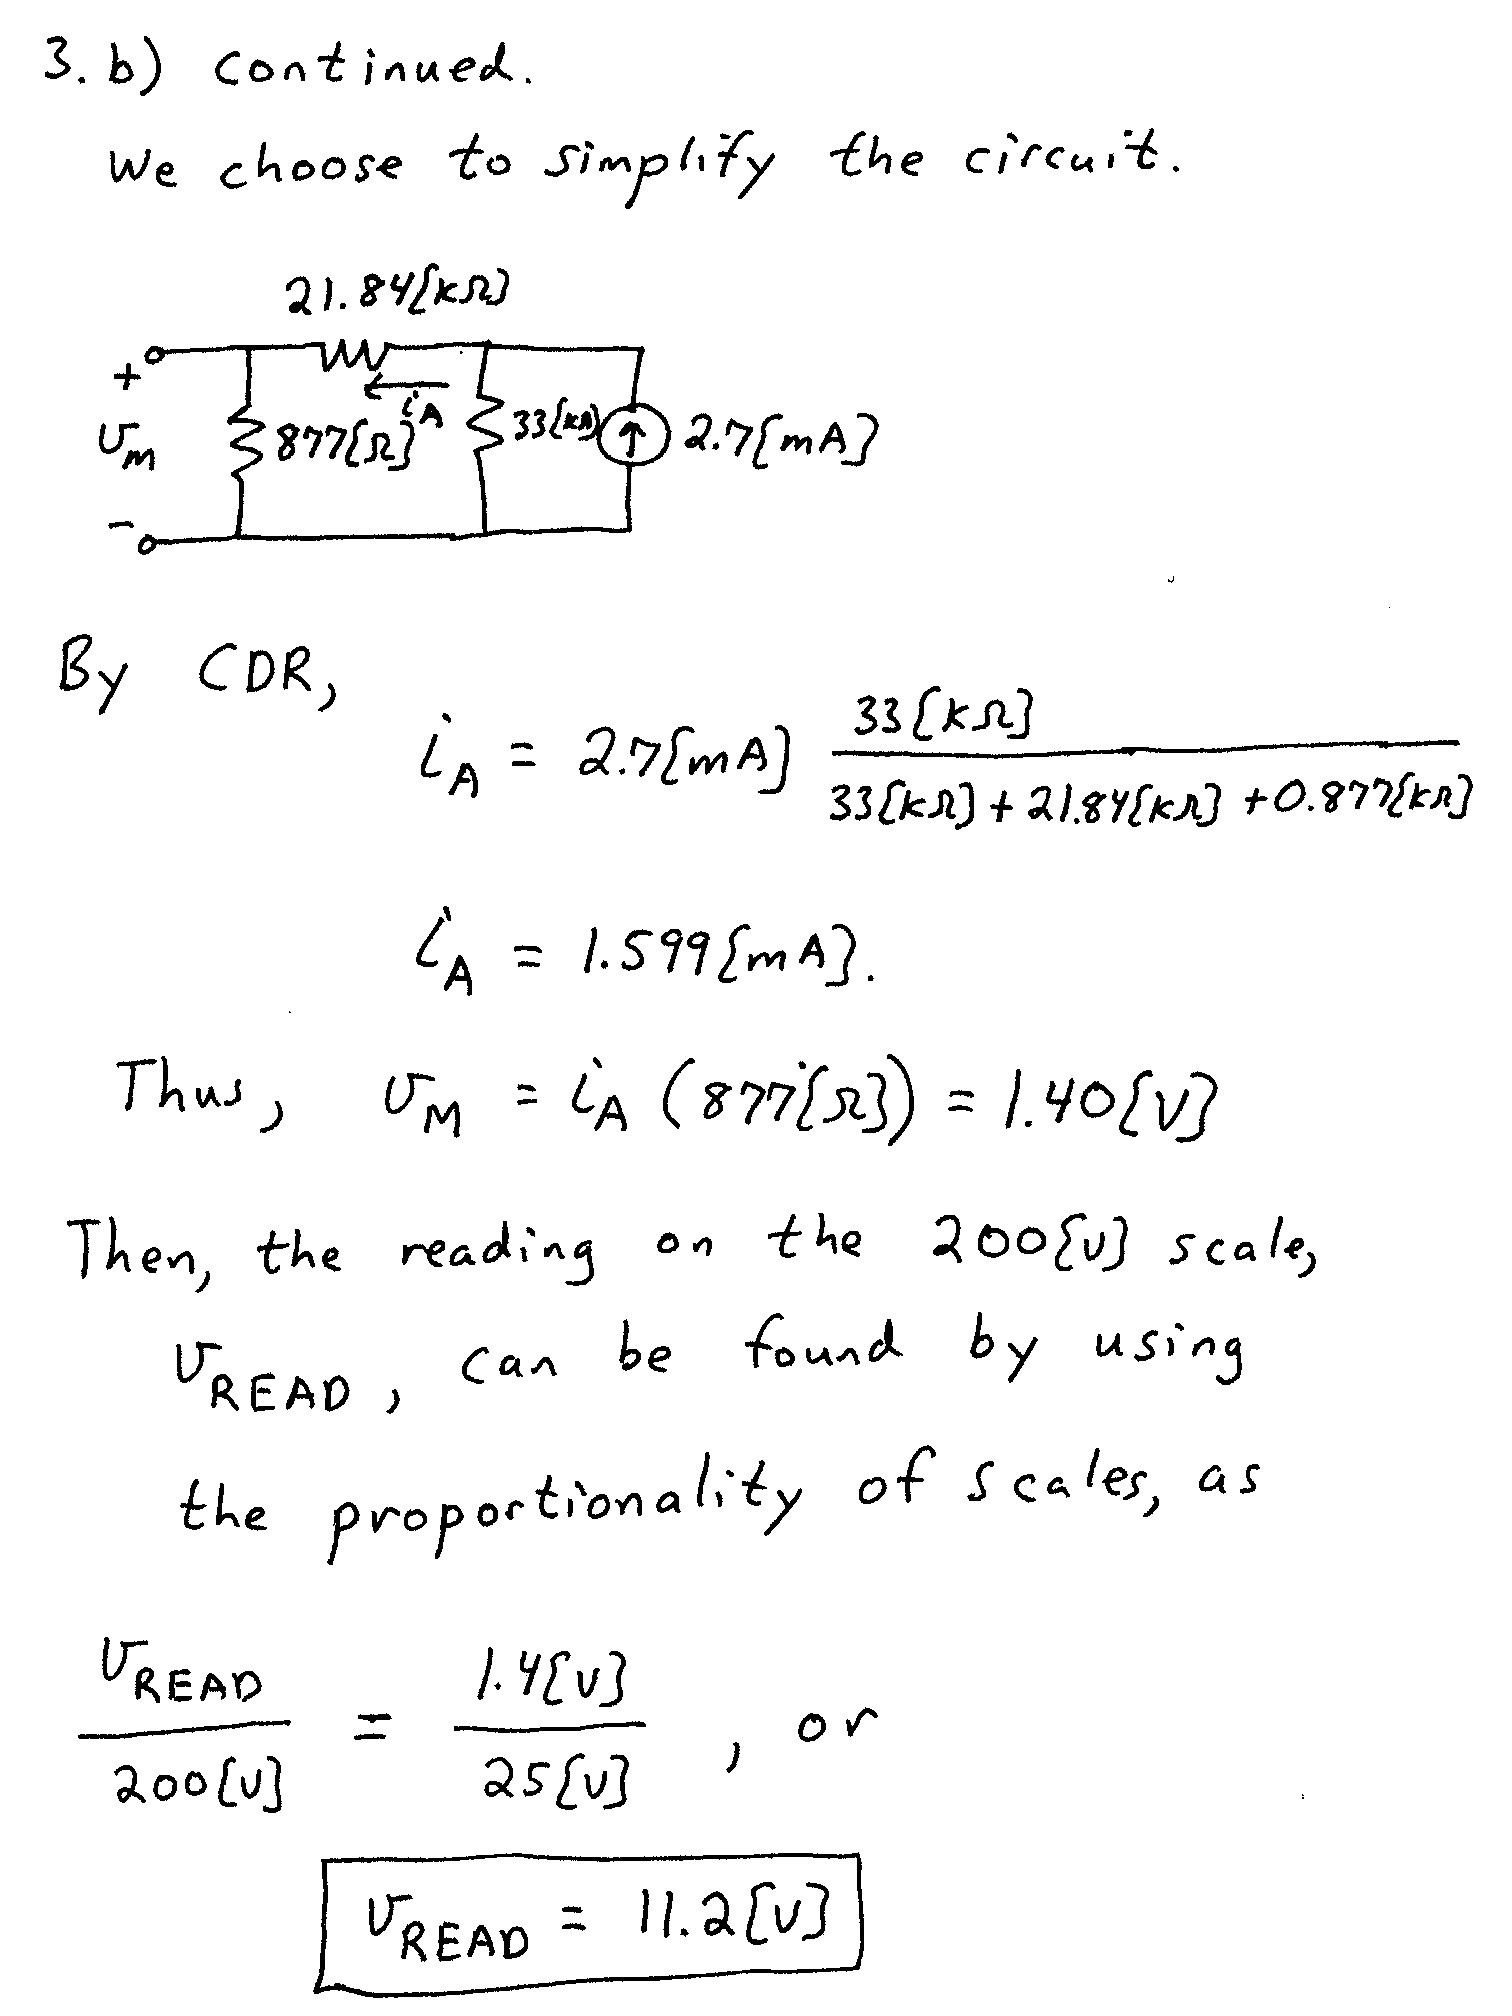 3. b) continued.
We choose to simplify the circuit.
21.84[kΩ]
+
iA
vm
877[Ω]
33[kΩ]
2.7[mA]
-
By CDR,
iA = 2.7[mA] 33[kΩ] / 33[kΩ] + 21.84[kΩ] + 0.877[kΩ]
iA = 1.599[mA].
Thus, vM = iA (877[Ω]) = 1.40[V]
Then, the reading on the 200[V] scale,
vREAD, can be found by using
the proportionality of scales, as
vREAD / 200[V] = 1.4[V] / 25[V] , or
vREAD = 11.2[V]